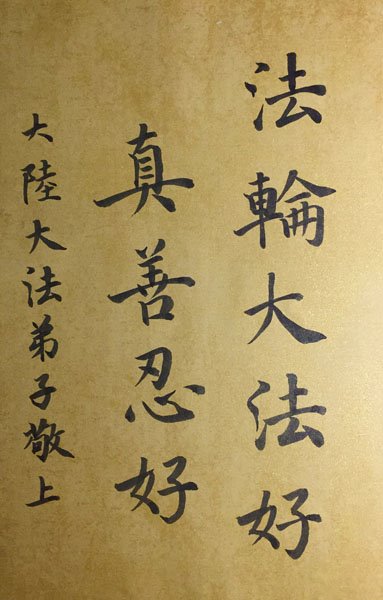 法輪大法好
真善忍好
大陸大法弟子敬上